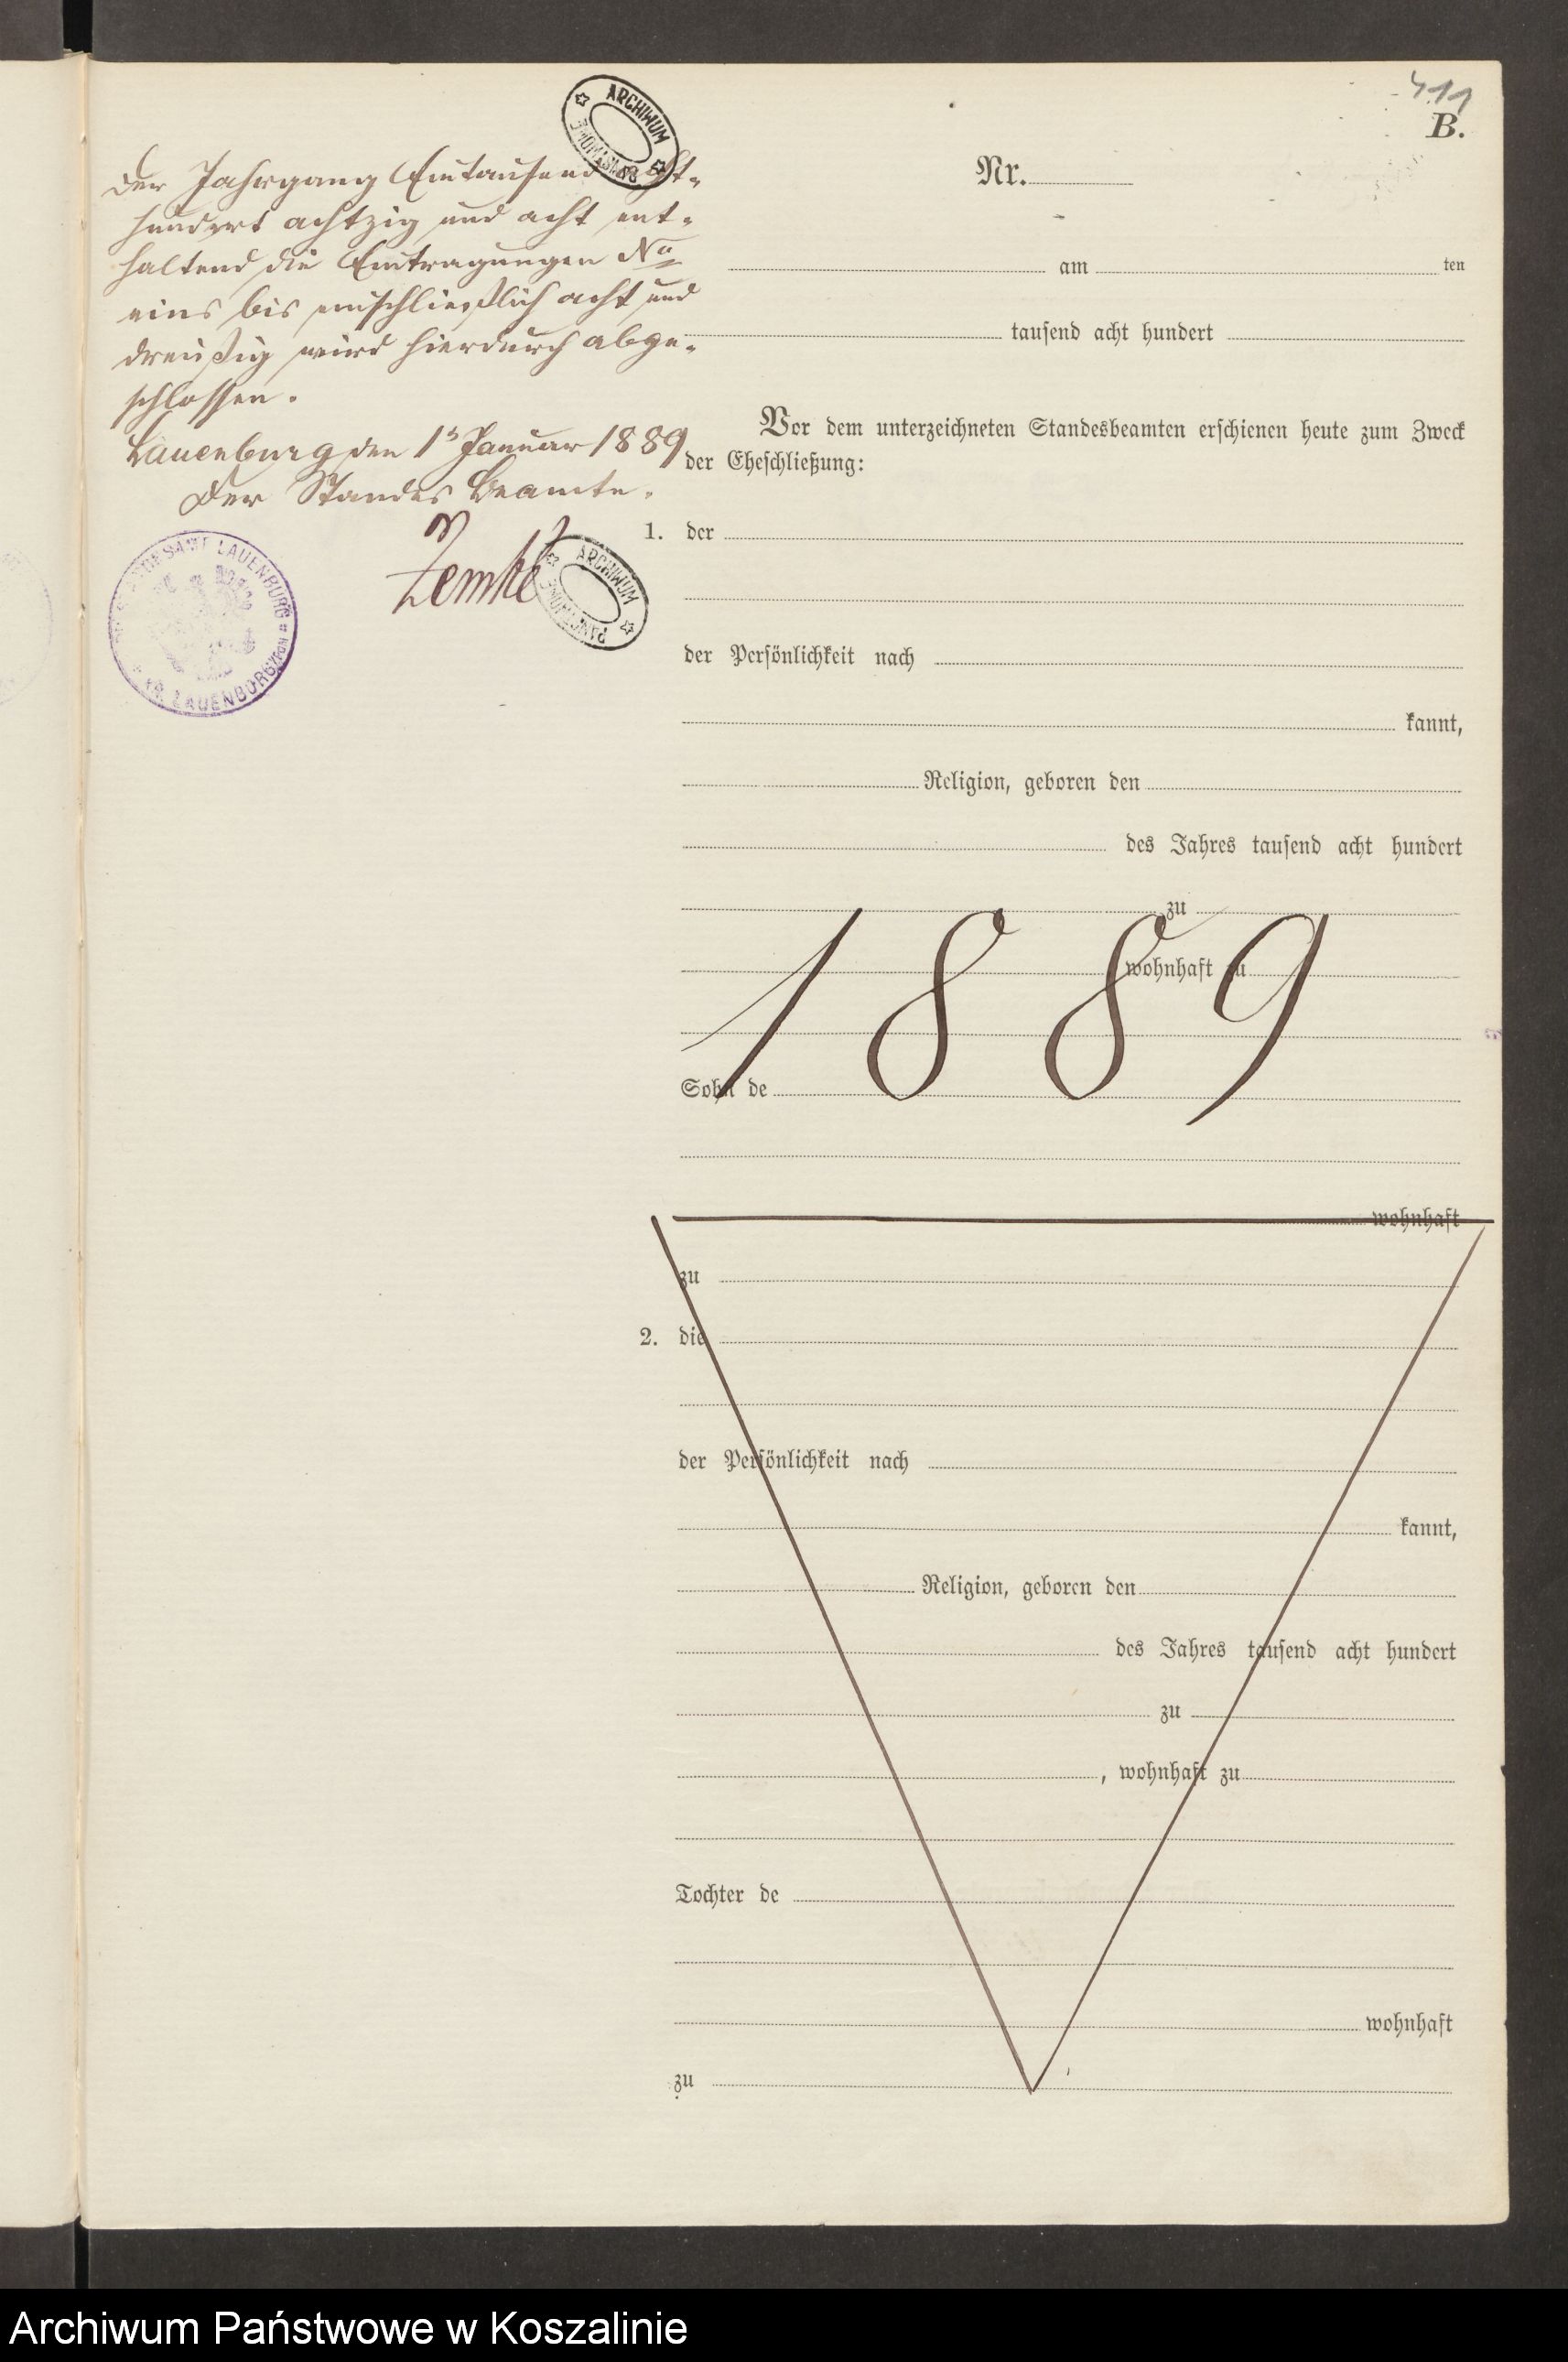 411
B.
der Jahrgang Eintausend acht-
hundert achtzig und acht ent-
haltend die Eintragungen No
eins bis einschließlich acht und
dreißig wird hierdurch abge-
schlossen.
Lauenburg den 1 Januar 1889
Der Standes Beamte.
Zemke
ARCHIWUM PAŃSTWOWE
ARCHIWUM PAŃSTWOWE
STANDESAMT LAUENBURG
KR. LAUENBURG
Nr.
am ten
tausend acht hundert
Vor dem unterzeichneten Standesbeamten erschienen heute zum Zweck
der Eheschließung:
1. der
der Persönlichkeit nach
kannt,
Religion, geboren den
des Jahres tausend acht hundert
zu
wohnhaft zu
1889
Sohn de
wohnhaft
zu
2. die
der Persönlichkeit nach
kannt,
Religion, geboren den
des Jahres tausend acht hundert
zu
, wohnhaft zu
Tochter de
wohnhaft
zu
Archiwum Państwowe w Koszalinie